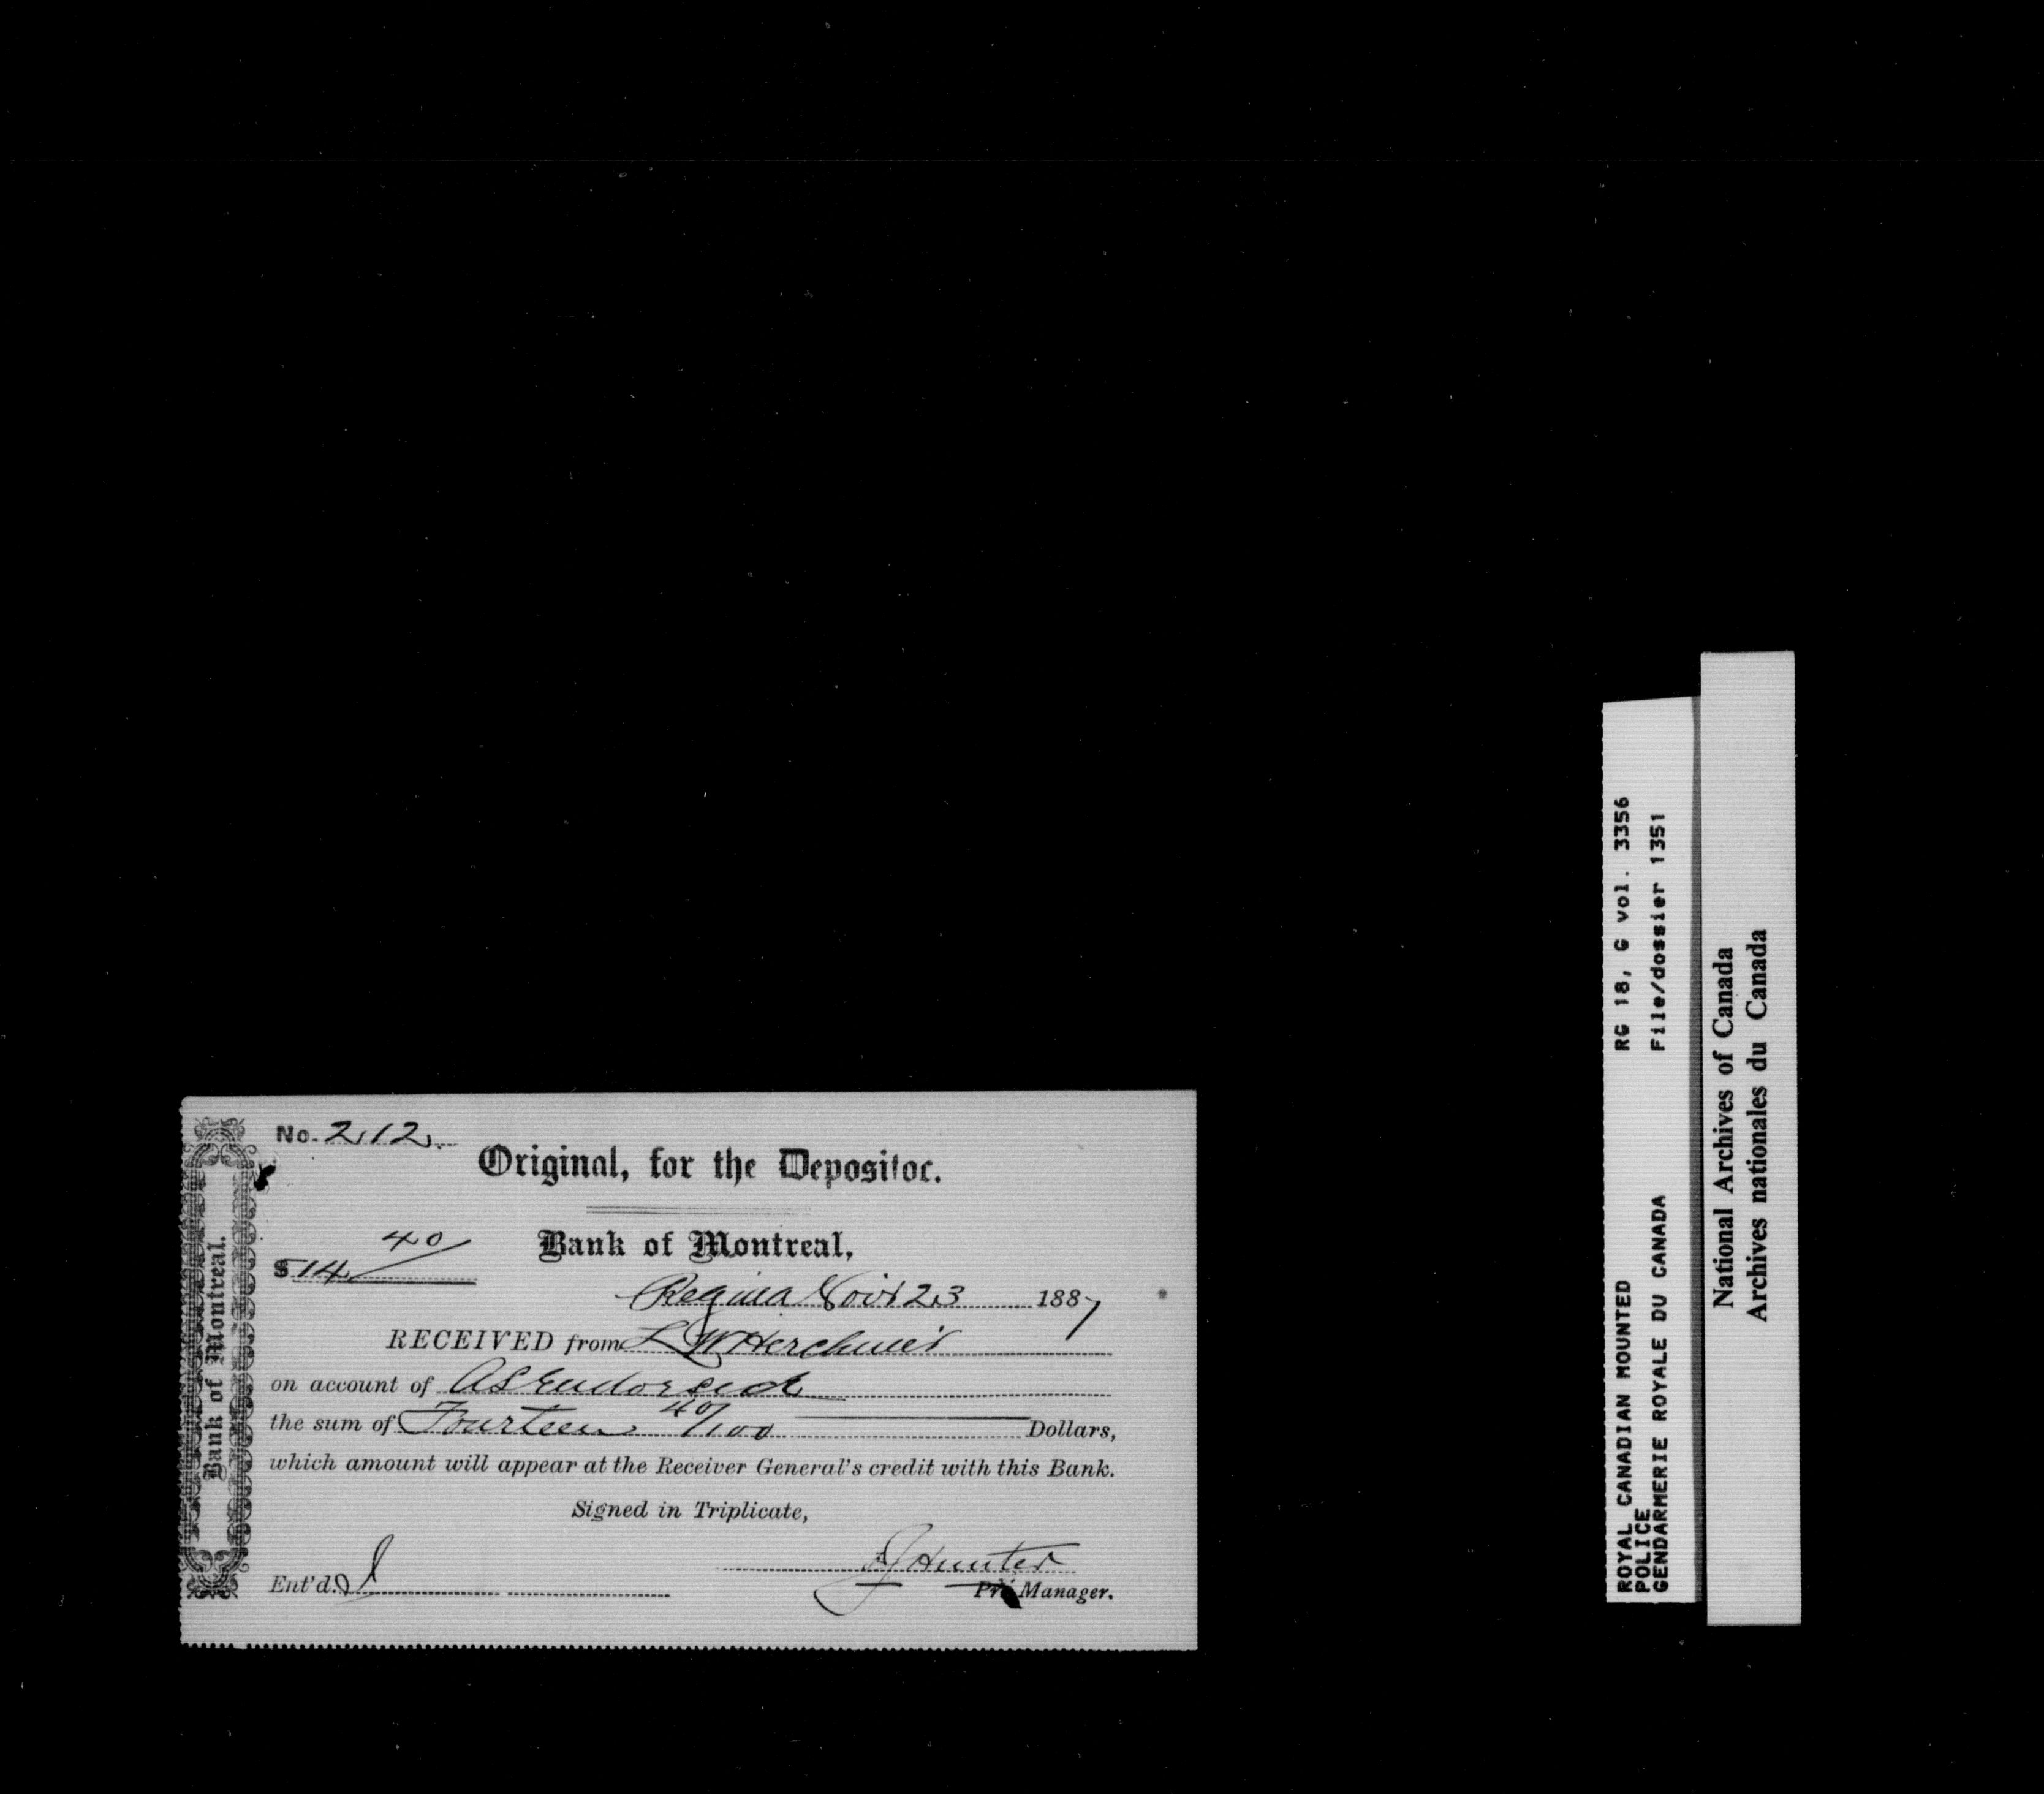 No. 212
Original, for the Depositor.
Bank of Montreal,
$14 40/
Regina Nov 23 1887
RECEIVED from L W Herchmer
on account of As Endorsed
the sum of Fourteen 40/100 Dollars,
which amount will appear at the Receiver General's credit with this Bank.
Signed in Triplicate,
Hunter
Ent'd.
Pro Manager.
Bank of Montreal.
ROYAL CANADIAN MOUNTED RG 18, G vol. 3356
POLICE
GENDARMERIE ROYALE DU CANADA File/dossier 1351
National Archives of Canada
Archives nationales du Canada